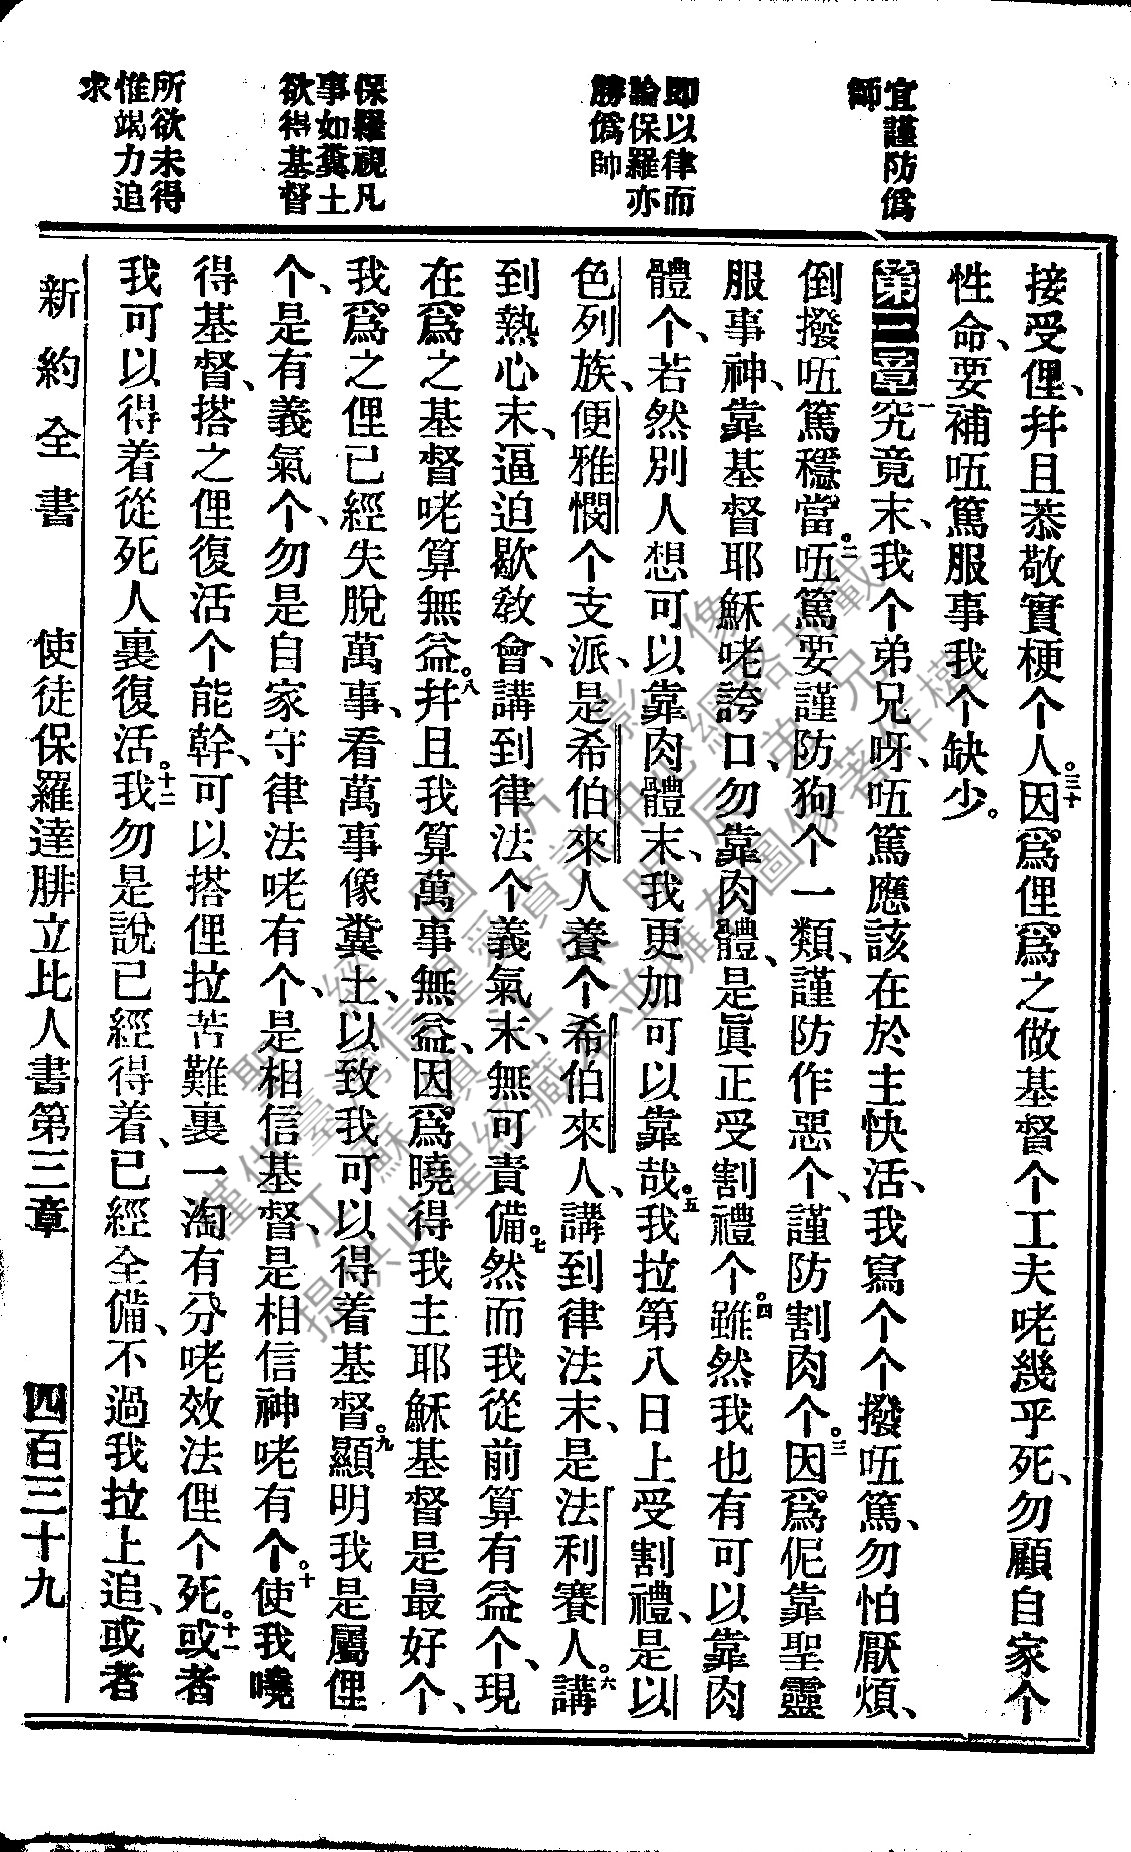 宜謹防僞
師
即以律而
論保羅亦
勝僞帥
保羅視凡
事如糞土
欲得基督
所欲未得
惟竭力追
求
接受俚、幷且恭敬實梗个人。三十因爲俚爲之做基督个工夫咾幾乎死、勿顧自家个
性命、要補𠵇篤服事我个缺少。
第三章一究竟末、我个弟兄呀、𠵇篤應該在於主快活、我寫个个撥𠵇篤、勿怕厭煩、
倒撥𠵇篤穩當。二𠵇篤要謹防狗个一類、謹防作惡个、謹防割肉个。三因爲伲靠聖靈
服事神、靠基督耶穌咾誇口、勿靠肉體、是眞正受割禮个。四雖然我也有可以靠肉
體个、若然別人想可以靠肉體末、我更加可以靠哉。五我拉第八日上受割禮、是以
色列族、便雅憫个支派、是希伯來人養个希伯來人、講到律法末、是法利賽人。六講
到熱心末、逼迫歇敎會、講到律法个義氣末、無可責備。七然而我從前算有益个、現
在爲之基督咾算無益。八幷且我算萬事無益、因爲曉得我主耶穌基督是最好个、
我爲之俚已經失脫萬事、看萬事像糞土、以致我可以得着基督。九顯明我是屬俚
个、是有義氣个、勿是自家守律法咾有个、是相信基督、是相信神咾有个。十使我曉
得基督、搭之俚復活个能幹、可以搭俚拉苦難裏一淘有分咾效法俚个死。十一或者
我可以得着從死人裏復活。十二我勿是說已經得着、已經全備、不過我拉上追、或者
新約全書　使徒保羅達腓立比人書第三章　四百三十九
聖經圖片影像
僅供臺灣信望愛資訊中心網路刊載
江蘇鎮江
提供此聖經藏本並擁有圖像著作權